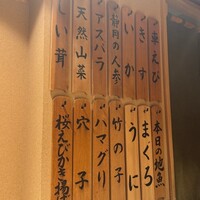 車えび
きす
いか
静岡の人参
アスパラ
天然山菜
しい茸
本日の地魚
まぐろ
うに
竹の子
ハマグリ
穴子
桜えびかき揚